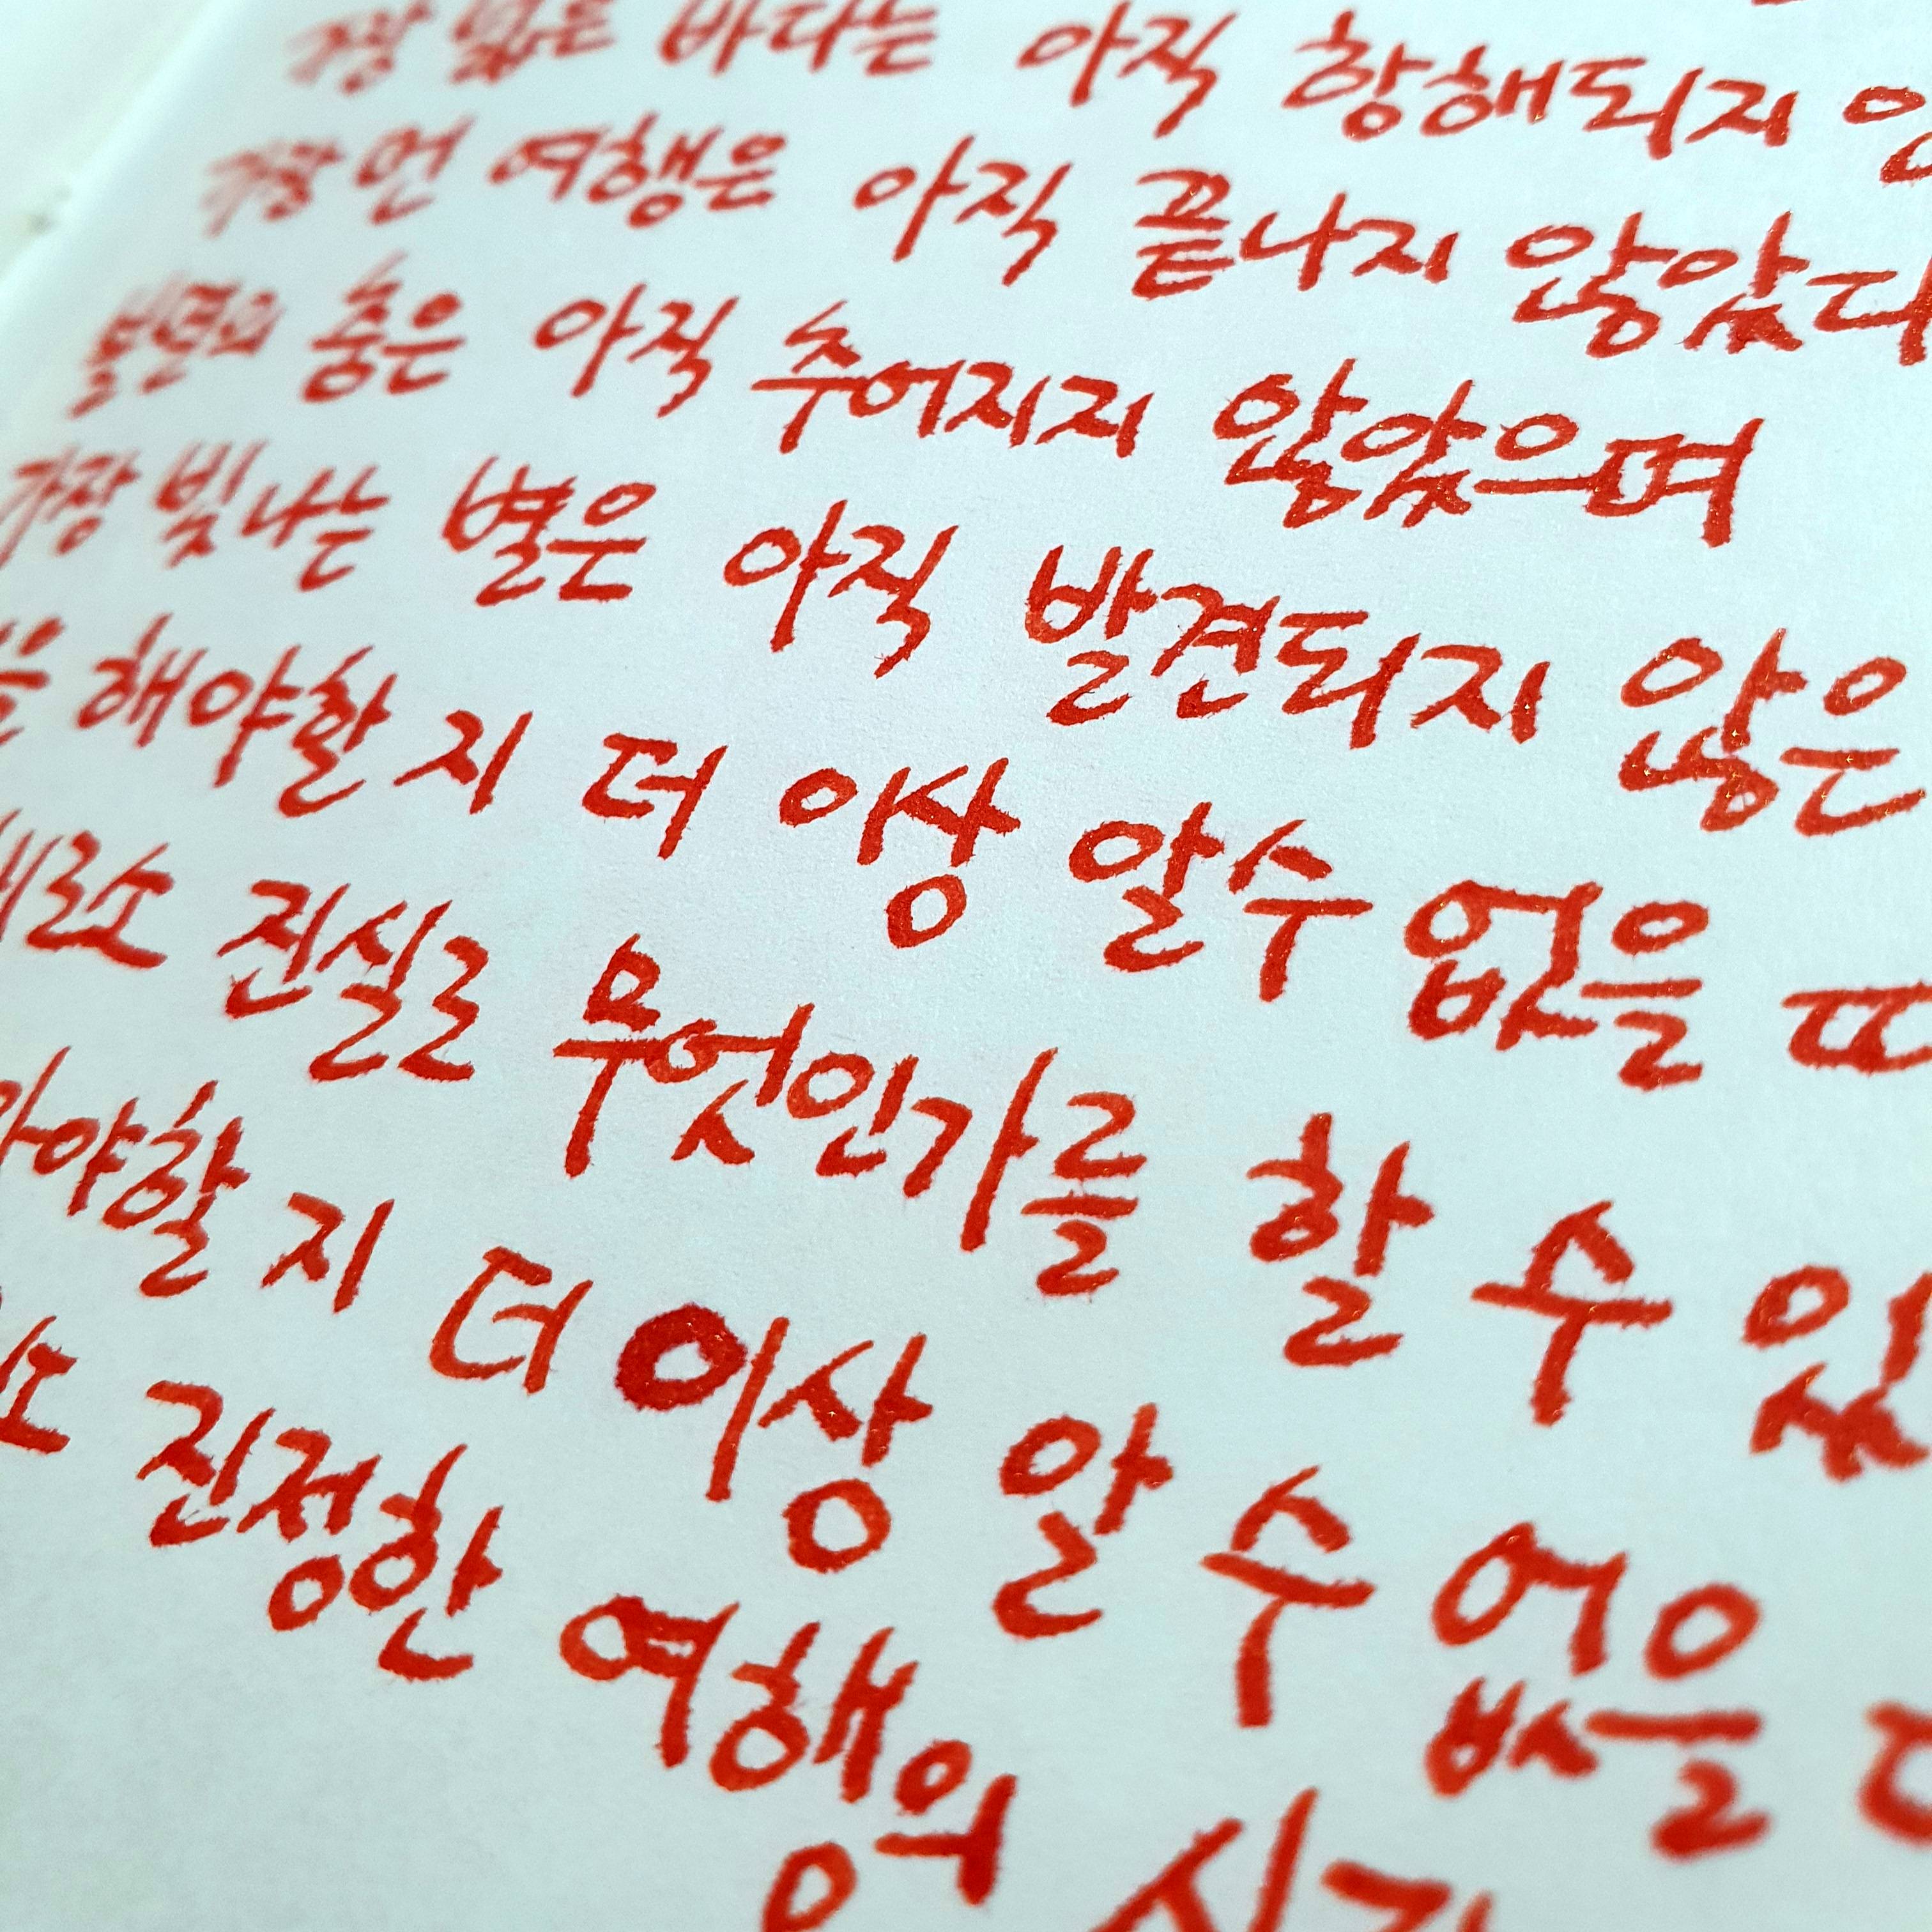 가장 넓은 바다는 아직 항해되지
가장 먼 여행은 아직 끝나지 않았다
불멸의 춤은 아직 추어지지 않았으며
가장 빛나는 별은 아직 발견되지 않은
해야할 지 더 이상 알수 없을
진실로 무엇인가를 할 수
더 이상 알 수 없을
진정한 여행의